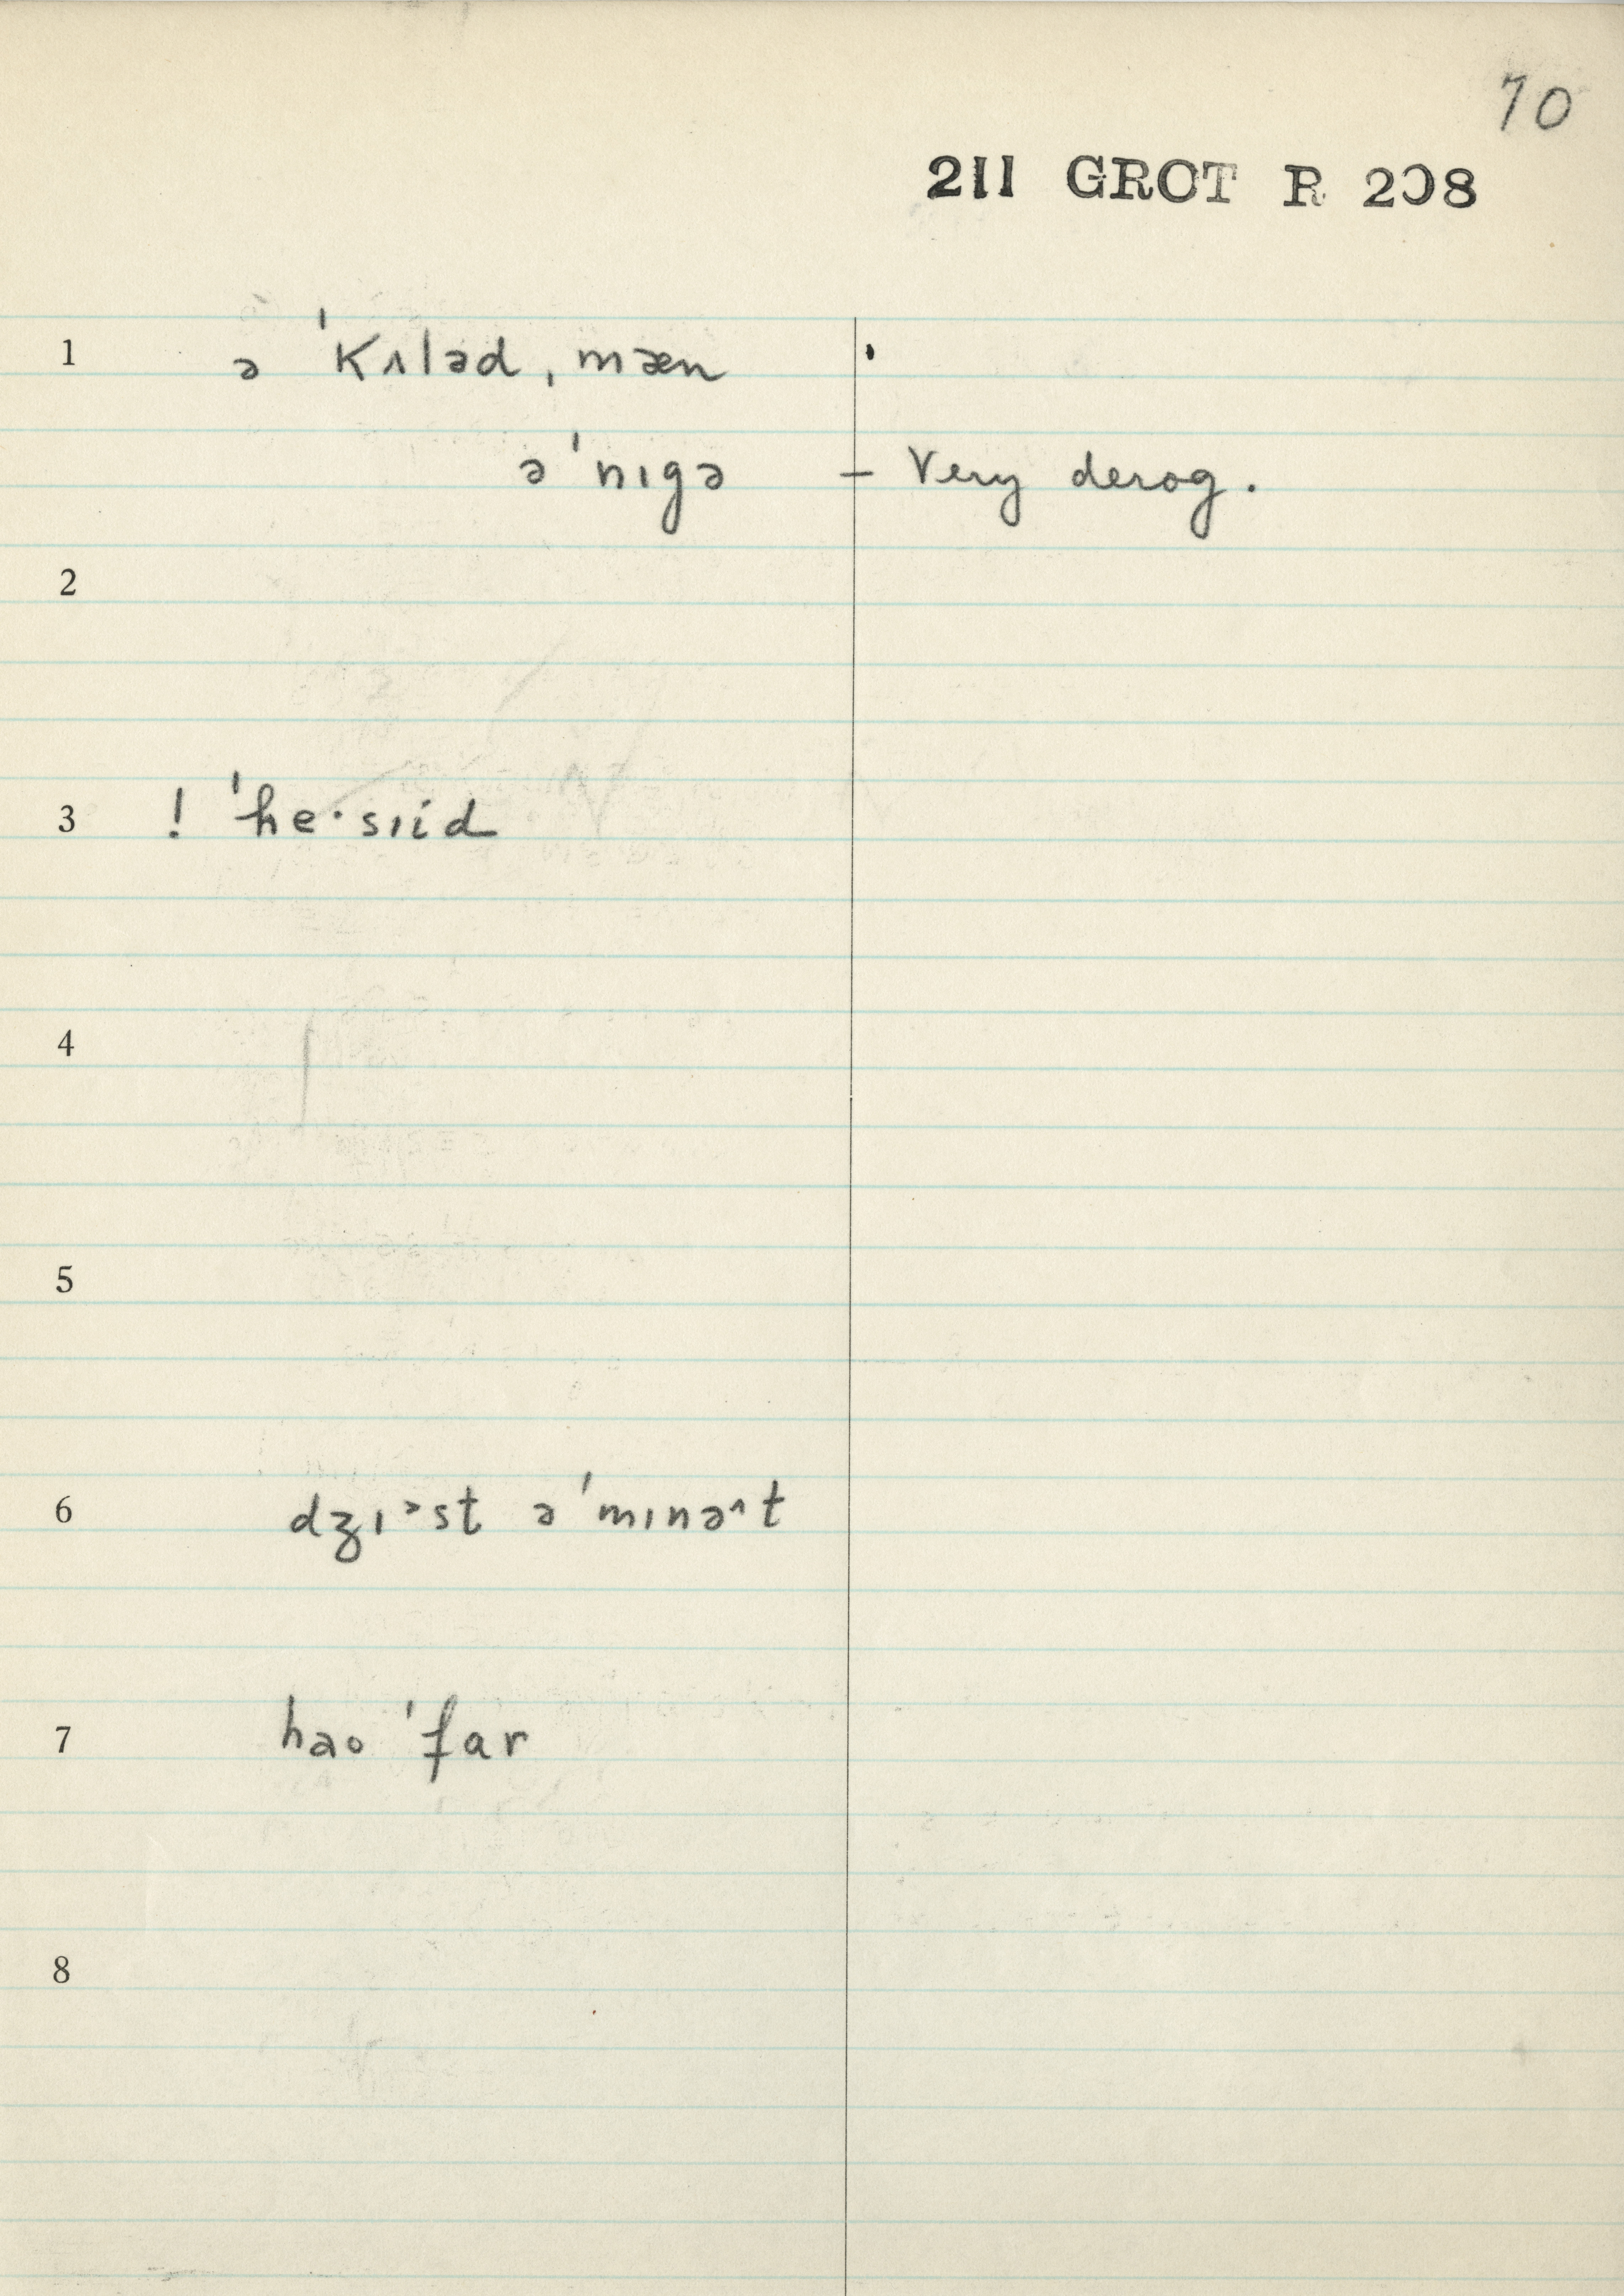 70
211 GROT R 208
1 ə ˈkʌləd ˌmæn
ə ˈnɪgə – Very derog.
2
3 ! ˈheˑsɪid
4
5
6 dʒɪᵊst ə ˈmɪnə^t
7 hɘo ˈfar
8